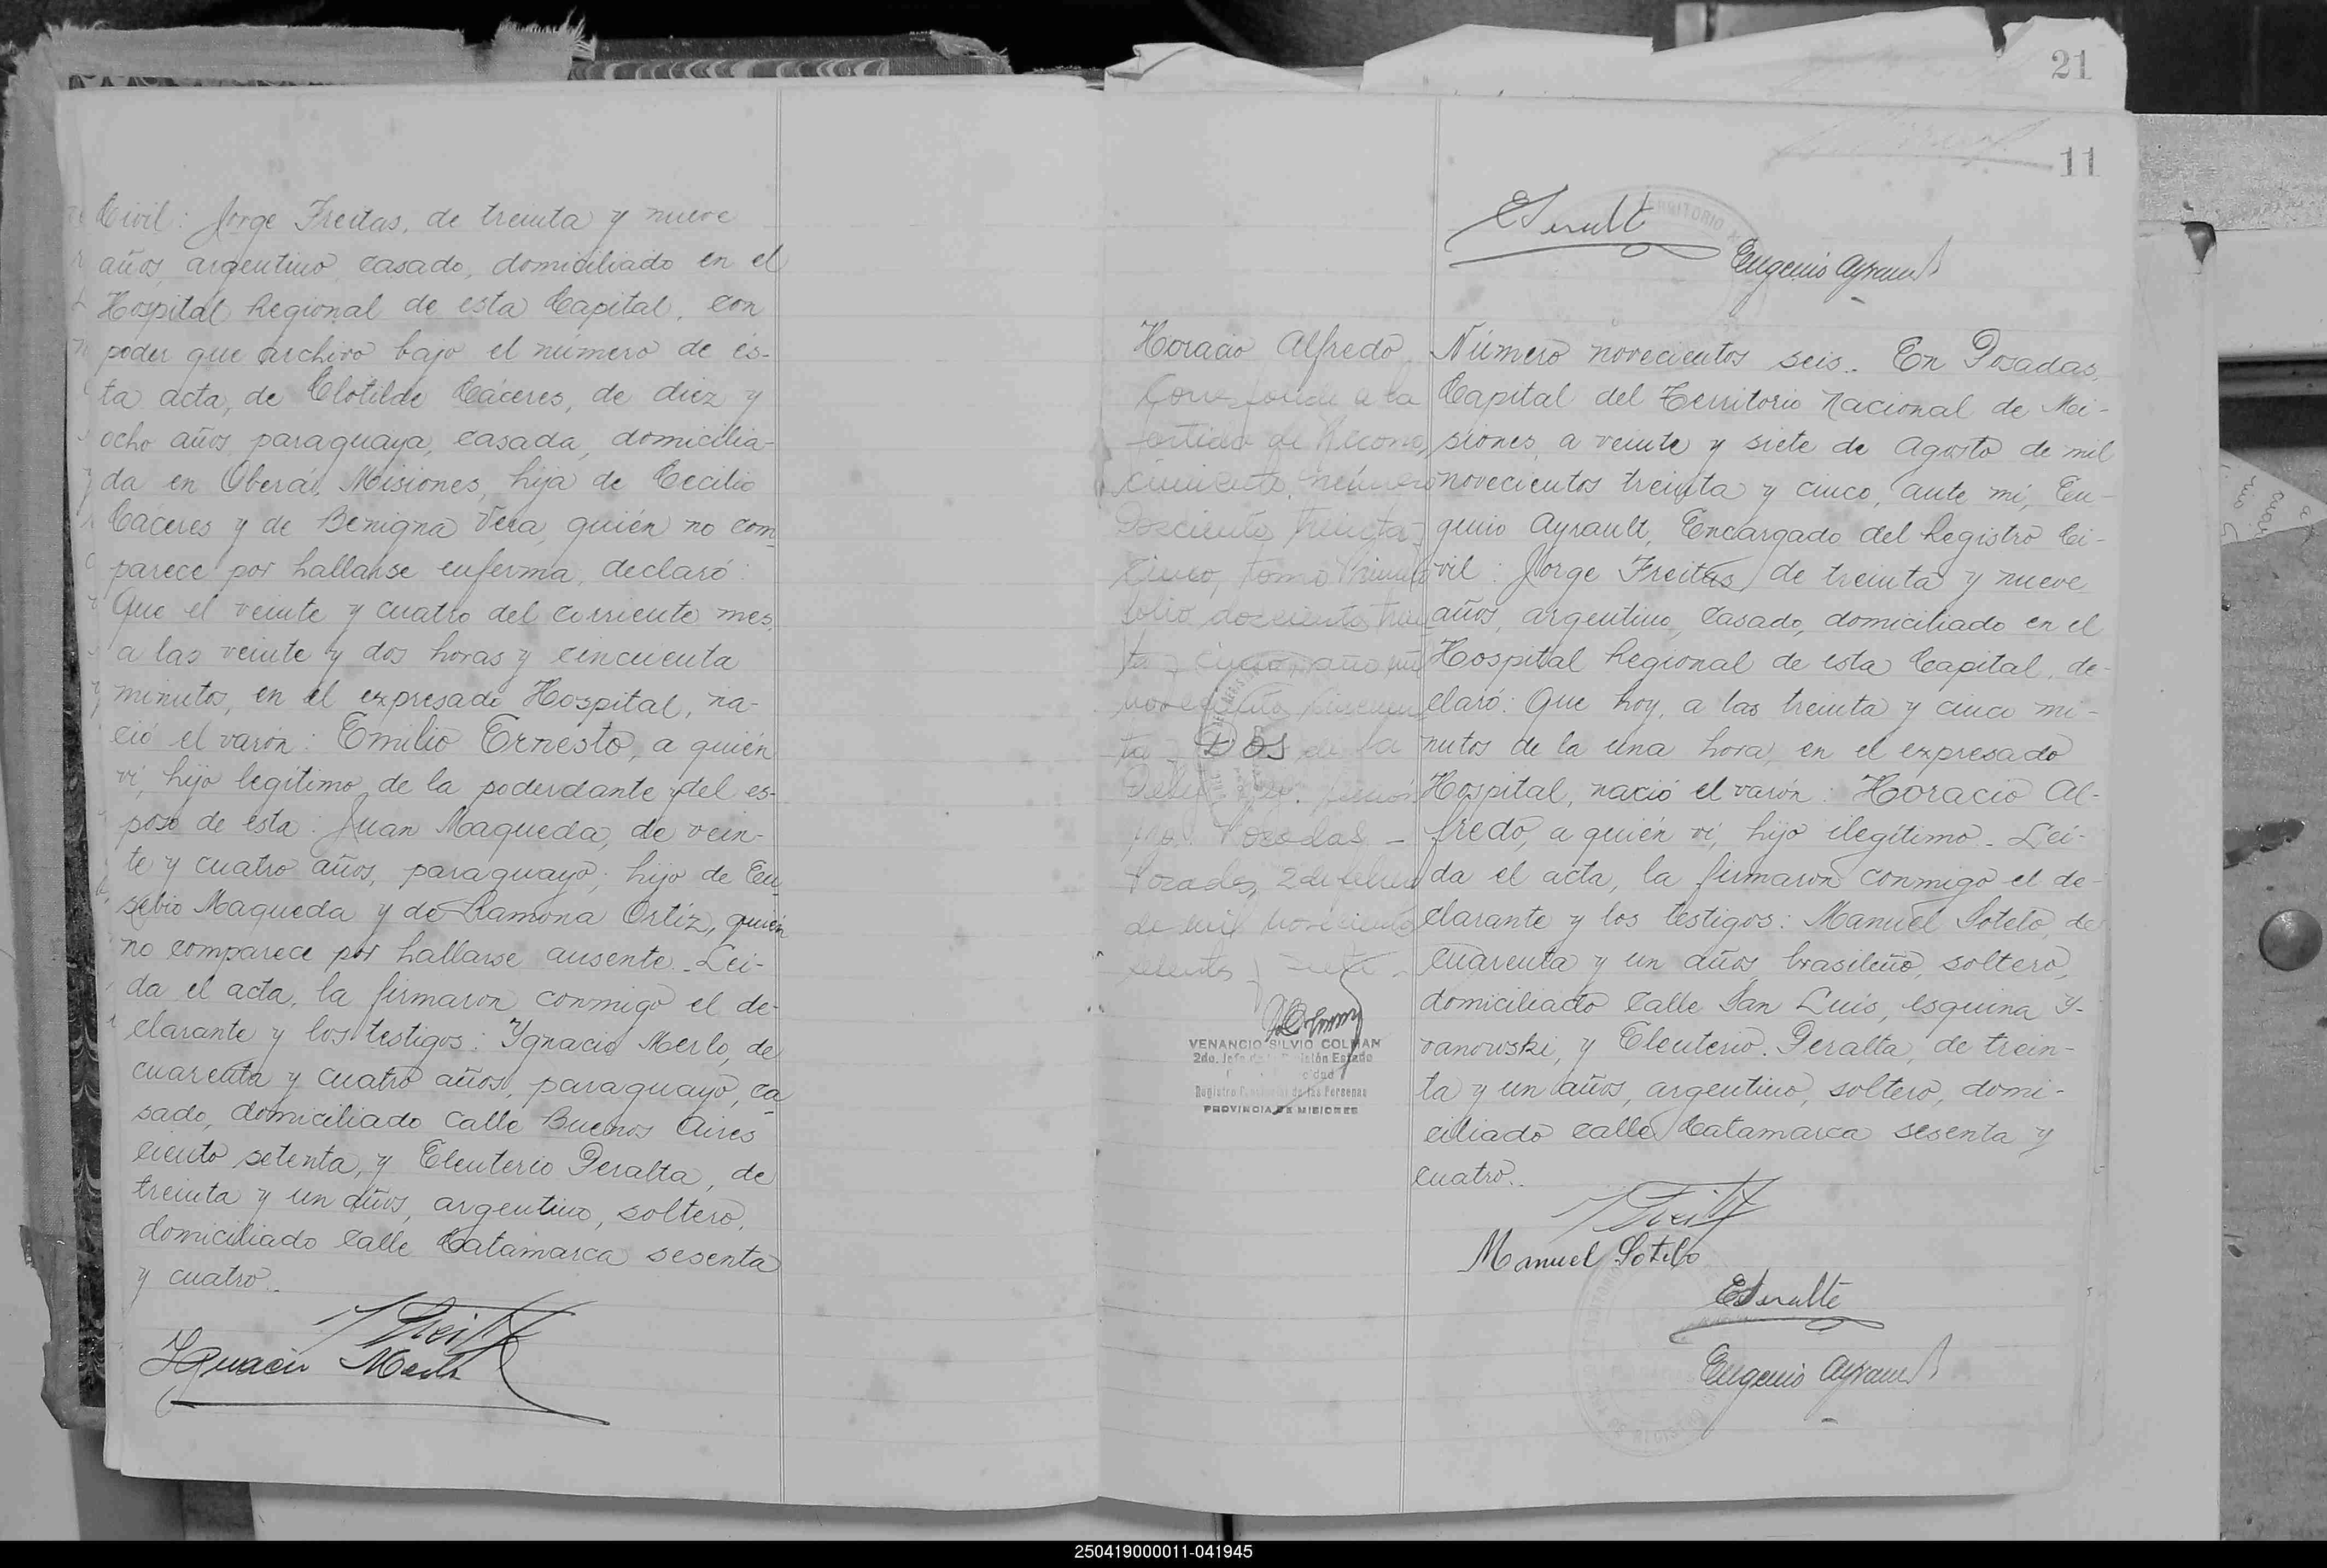 Civil: Jorge Freitas, de treinta y nueve
años, argentino, casado, domiciliado en el
Hospital Regional de esta Capital, con
poder que archivo bajo el número de és-
ta acta, de Clotilde Cáceres, de diez y
ocho años, paraguaya, casada, domicilia-
da en Oberá, Misiones, hija de Cecilio
Cáceres y de Benigna Vera, quién no com-
parece por hallarse enferma, declaró:
Que el veinte y cuatro del corriente mes,
a las veinte y dos horas y cincuenta
minutos, en el expresado Hospital, na-
ció el varón: Emilio Ernesto, a quién
vi, hijo legítimo de la poderdante y del es-
poso de esta: Juan Maqueda, de vein-
te y cuatro años, paraguayo; hijo de Eu-
sebio Maqueda y de Ramona Ortíz, quién
no comparece por hallarse ausente. Lei-
da el acta, la firmaron conmigo el de-
clarante y los testigos: Ygnacio Merlo, de
cuarenta y cuatro años, paraguayo, ca-
sado, domiciliado calle Buenos Aires
ciento setenta, y Eleuterio Peralta, de
treinta y un años, argentino, soltero,
domiciliado calle Catamarca sesenta
y cuatro..
Ignacio Merlo
21
11
Eugenio Ayrault
Horacio Alfredo
Corresponde a la
partida de Recono-
cimiento, número
Doscientos treinta y
cinco, tomo
folio doscientos trein
ta y cinco, año mil
novecientos cincuen
ta y DOS de la
Posadas -
Posadas, 2 de febrero
de mil novecientos
sesenta y siete -
VENANCIO SILVIO COLMAN
2do. Jefe de División Estado
Registro Provincial de las Personas
PROVINCIA DE MISIONES
Número novecientos seis.. En Posadas,
Capital del Territorio Nacional de Mi-
siones, a veinte y siete de Agosto de mil
novecientos treinta y cinco, ante mí, Eu-
genio Ayrault, Encargado del Registro Ci-
vil: Jorge Freitas, de treinta y nueve
años, argentino, casado, domiciliado en el
Hospital Regional de esta Capital, de-
claró: Que hoy, a las treinta y cinco mi-
nutos de la una hora, en el expresado
Hospital, nació el varón: Horacio Al-
fredo, a quién vi, hijo ilegítimo. Lei-
da el acta, la firmaron conmigo el de-
clarante y los testigos: Manuel Sotelo, de
cuarenta y un años, brasileño, soltero,
domiciliado calle San Luis, esquina Y-
vanowski, y Eleuterio Peralta, de trein-
ta y un años, argentino, soltero, domi-
ciliado calle Catamarca sesenta y
cuatro..
Manuel Sotelo
EPeralta
Eugenio Ayrault
250419000011-041945